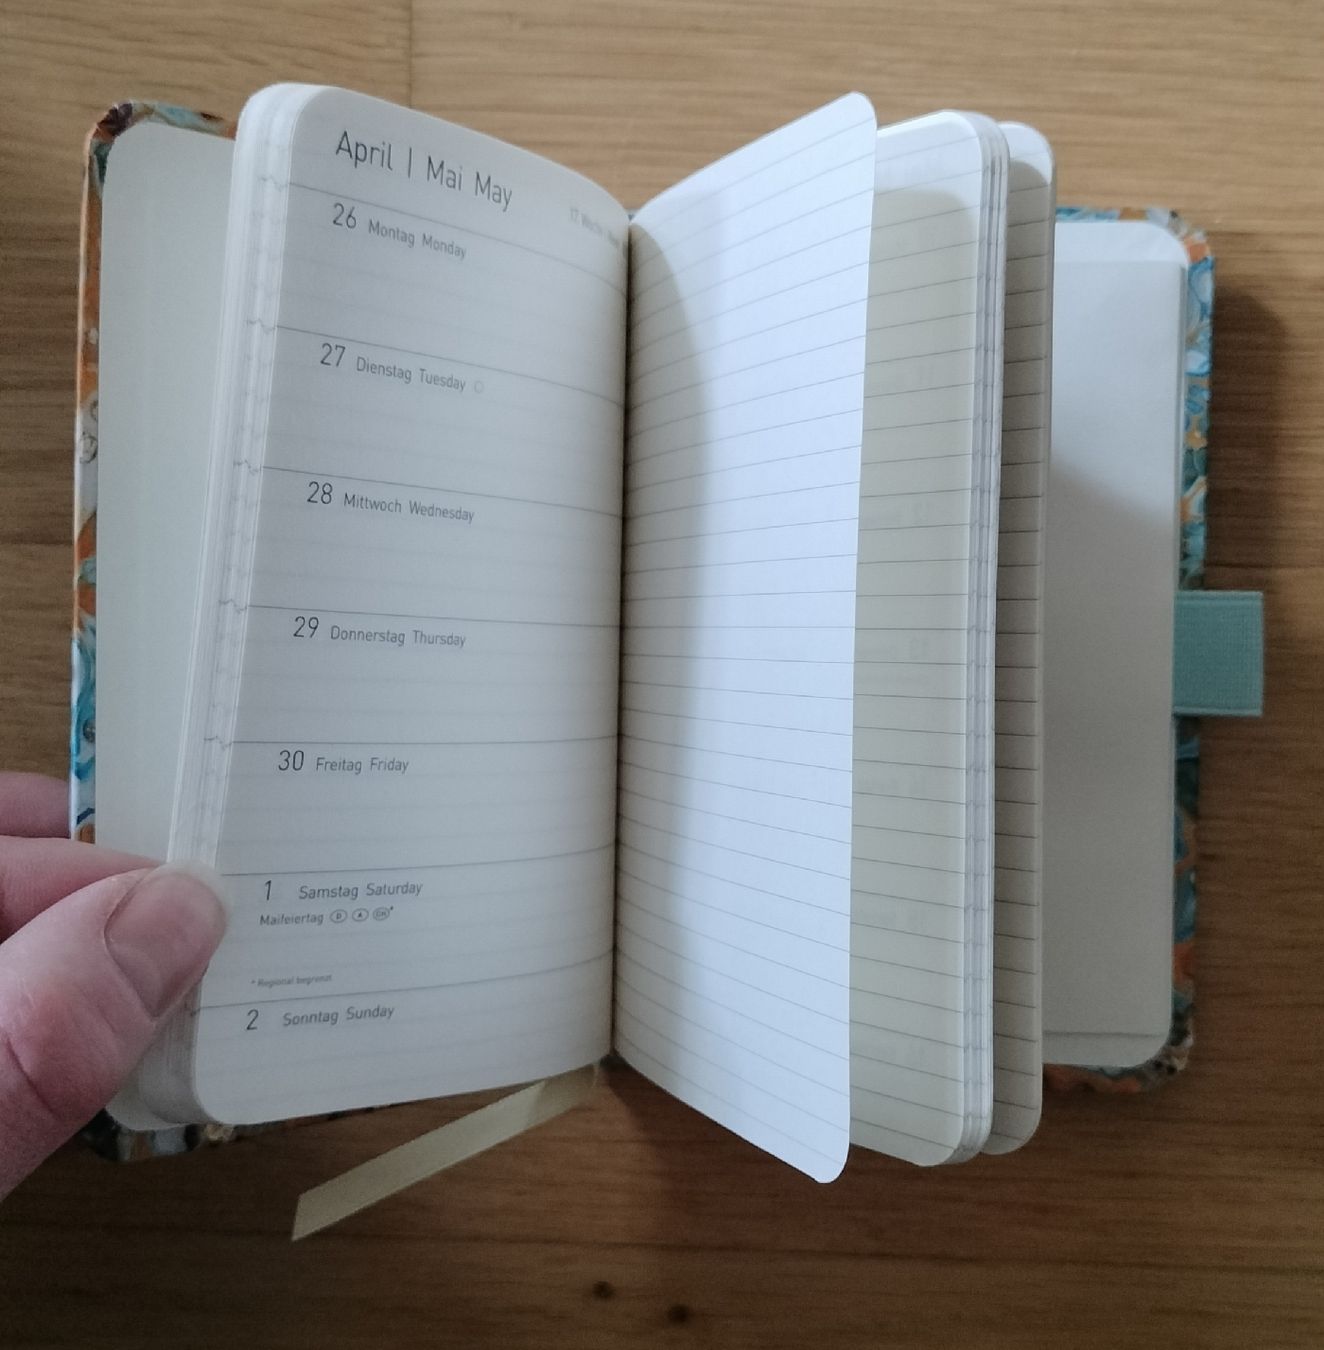 April | Mai May
17. Woche
26 Montag Monday
27 Dienstag Tuesday
28 Mittwoch Wednesday
29 Donnerstag Thursday
30 Freitag Friday
1 Samstag Saturday
Maifeiertag D A CH*
* Regional begrenzt
2 Sonntag Sunday